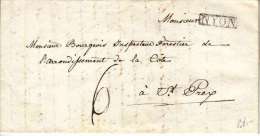 Monsieur NYON
Monsieur Bourgeois Inspecteur Forestier de
l'arrondissement de la Côte
à St Prex
6